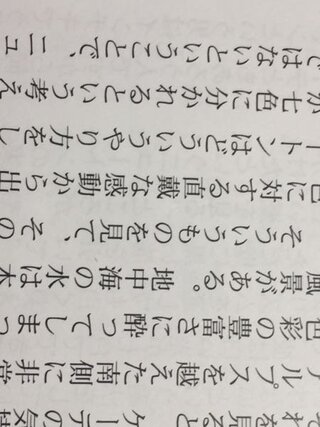 ではないということで、ニュ
が七色に分かれるという考え
ートンはどういうやり方をし
色に対する直截な感動から出
そういうものを見て、その
風景がある。地中海の水は
色彩の豊富さに酔ってしまっ
ルプスを越えた南側に非常
ゲーテの気持
それを見ると